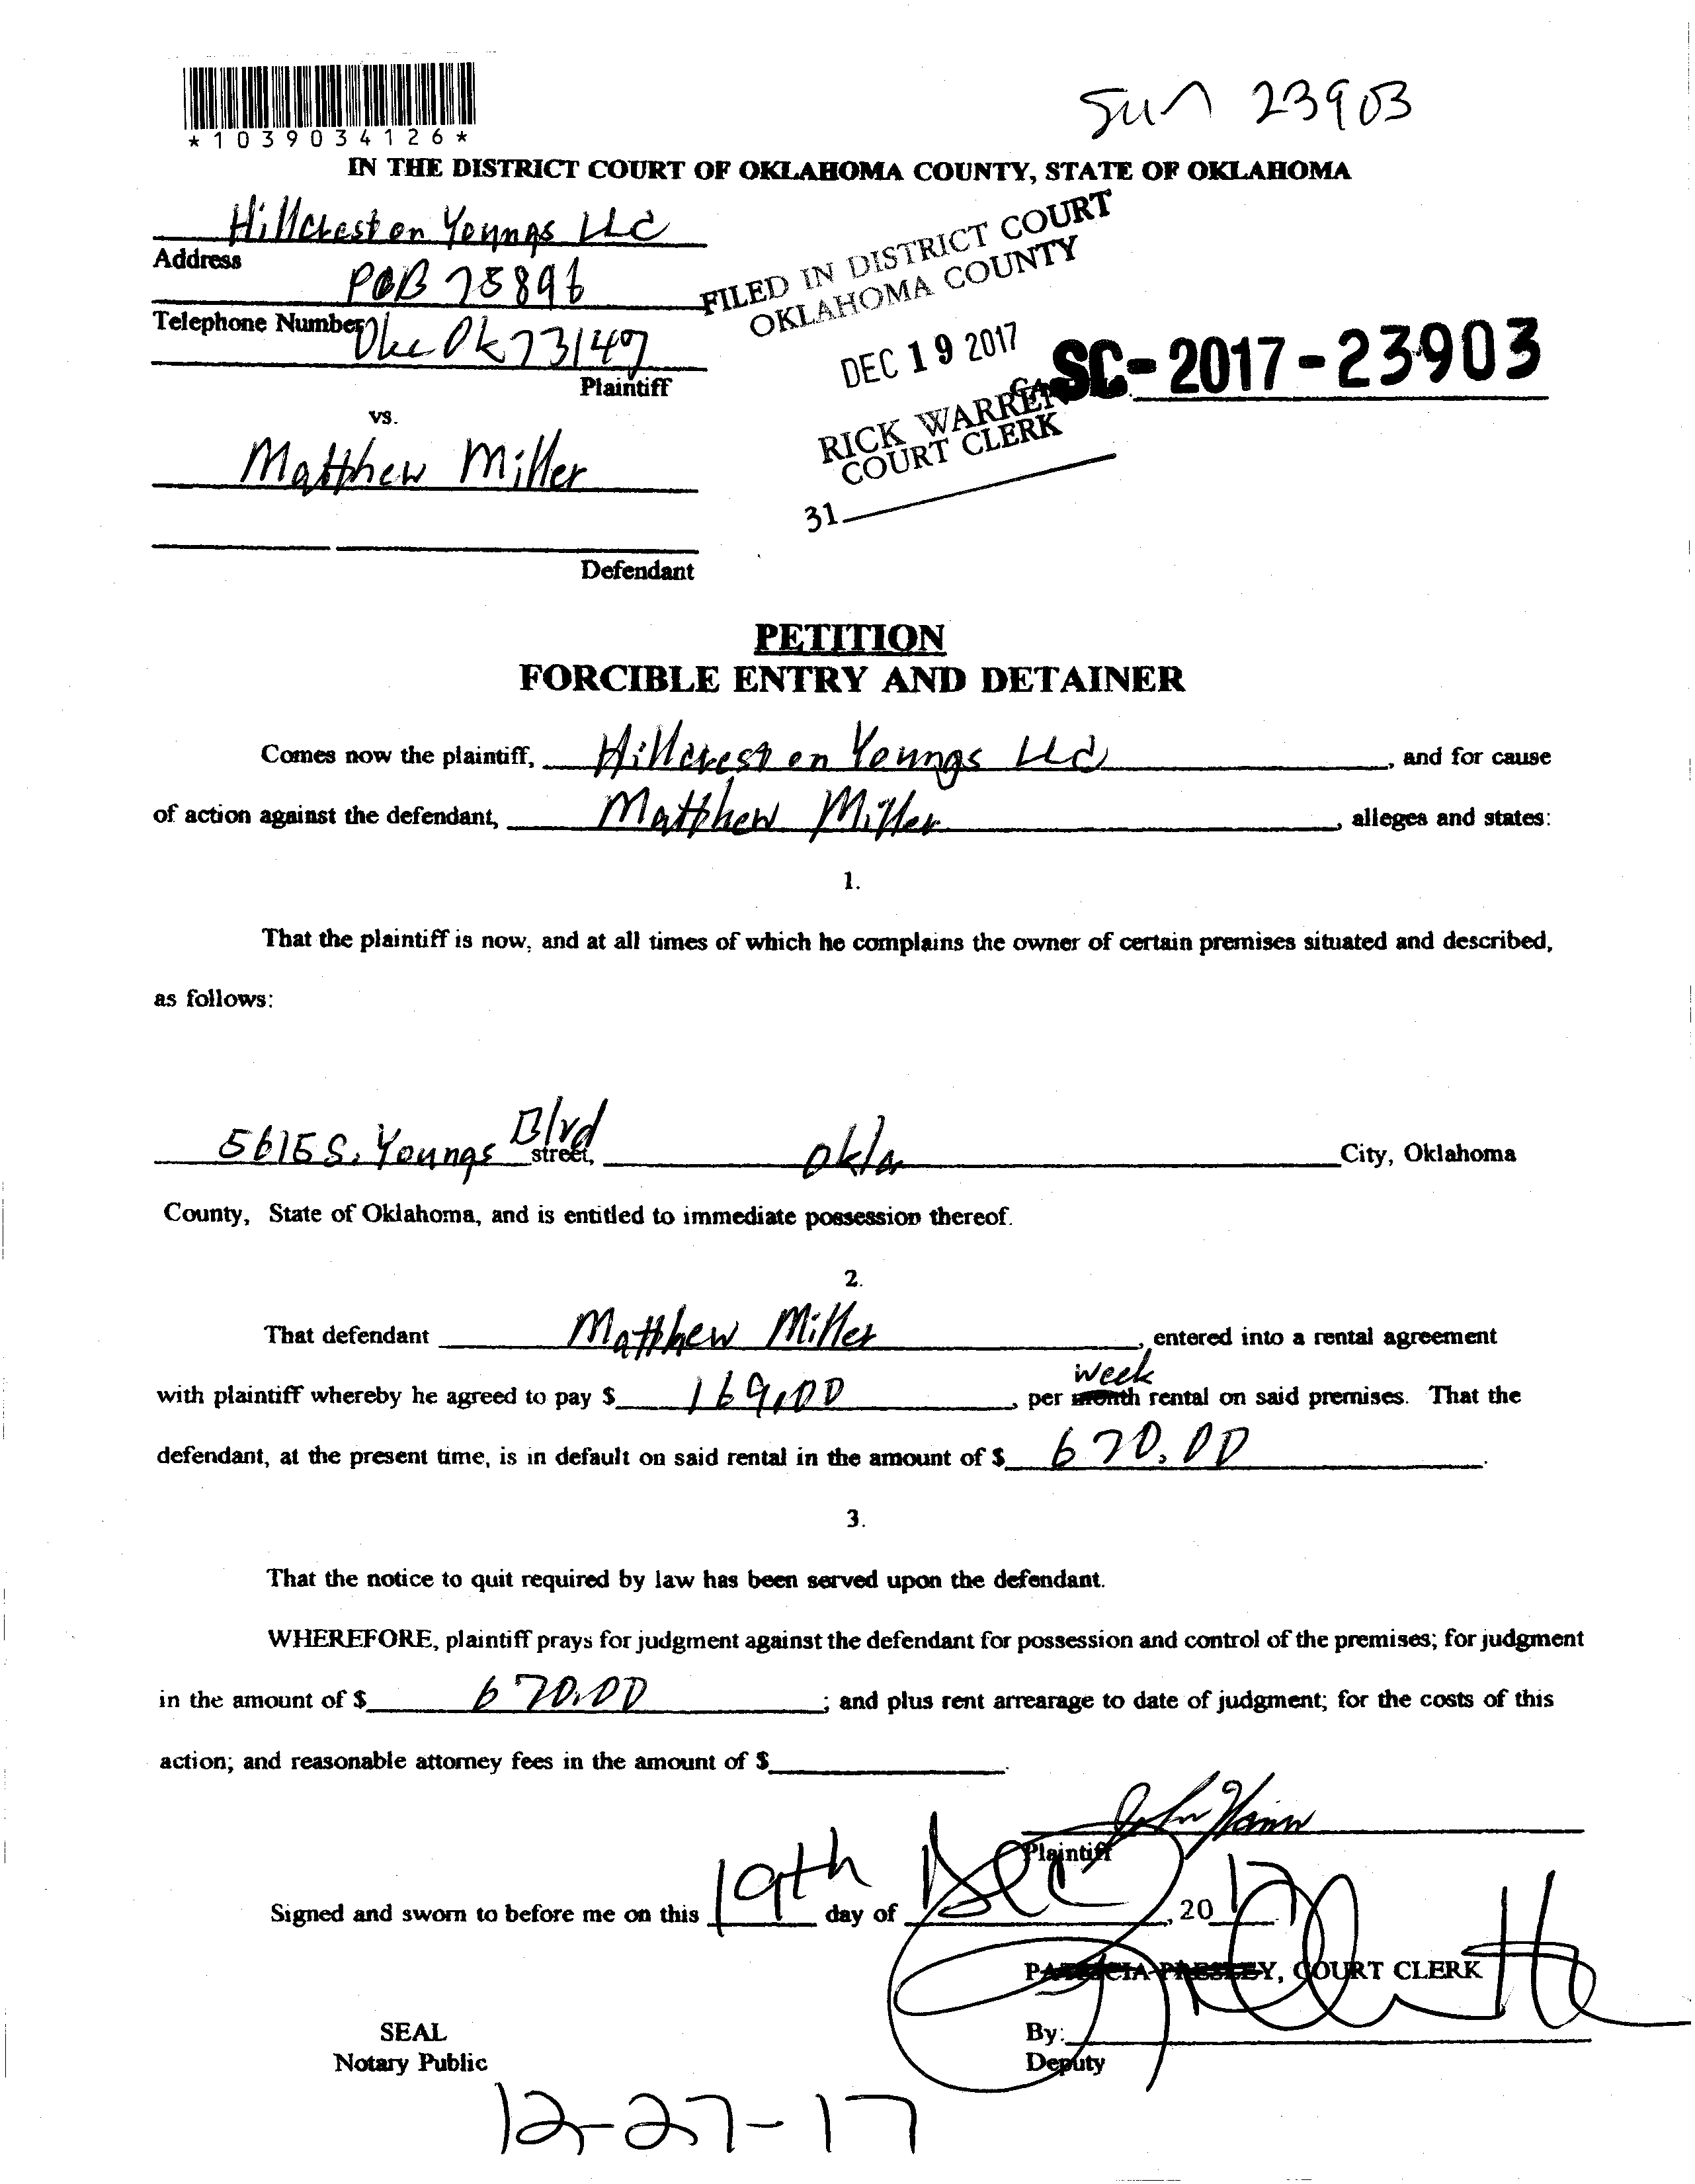 *1039034126*
Sun 23903
IN THE DISTRICT COURT OF OKLAHOMA COUNTY, STATE OF OKLAHOMA
Hillcrest on Youngs LLC
Address
POB 75896
Telephone Number
Okc Ok 73147
Plaintiff
FILED IN DISTRICT COURT
OKLAHOMA COUNTY
DEC 19 2017
RICK WARREN
COURT CLERK
31
SC-2017-23903
vs.
Matthew Miller
Defendant
PETITION
FORCIBLE ENTRY AND DETAINER
Comes now the plaintiff, Hillcrest on Youngs LLC, and for cause
of action against the defendant, Matthew Miller, alleges and states:
1.
That the plaintiff is now, and at all times of which he complains the owner of certain premises situated and described,
as follows:
5615 S. Youngs Blvd street, Okla City, Oklahoma
County, State of Oklahoma, and is entitled to immediate possession thereof.
2.
That defendant Matthew Miller, entered into a rental agreement
week
with plaintiff whereby he agreed to pay $ 169.00, per month rental on said premises. That the
defendant, at the present time, is in default on said rental in the amount of $ 670.00.
3.
That the notice to quit required by law has been served upon the defendant.
WHEREFORE, plaintiff prays for judgment against the defendant for possession and control of the premises; for judgment
in the amount of $ 670.00; and plus rent arrearage to date of judgment; for the costs of this
action; and reasonable attorney fees in the amount of $.
John
Plaintiff
Signed and sworn to before me on this 19th day of Dec, 2017
PATRICIA PRESLEY, COURT CLERK
SEAL
By:
Notary Public
Deputy
12-27-17